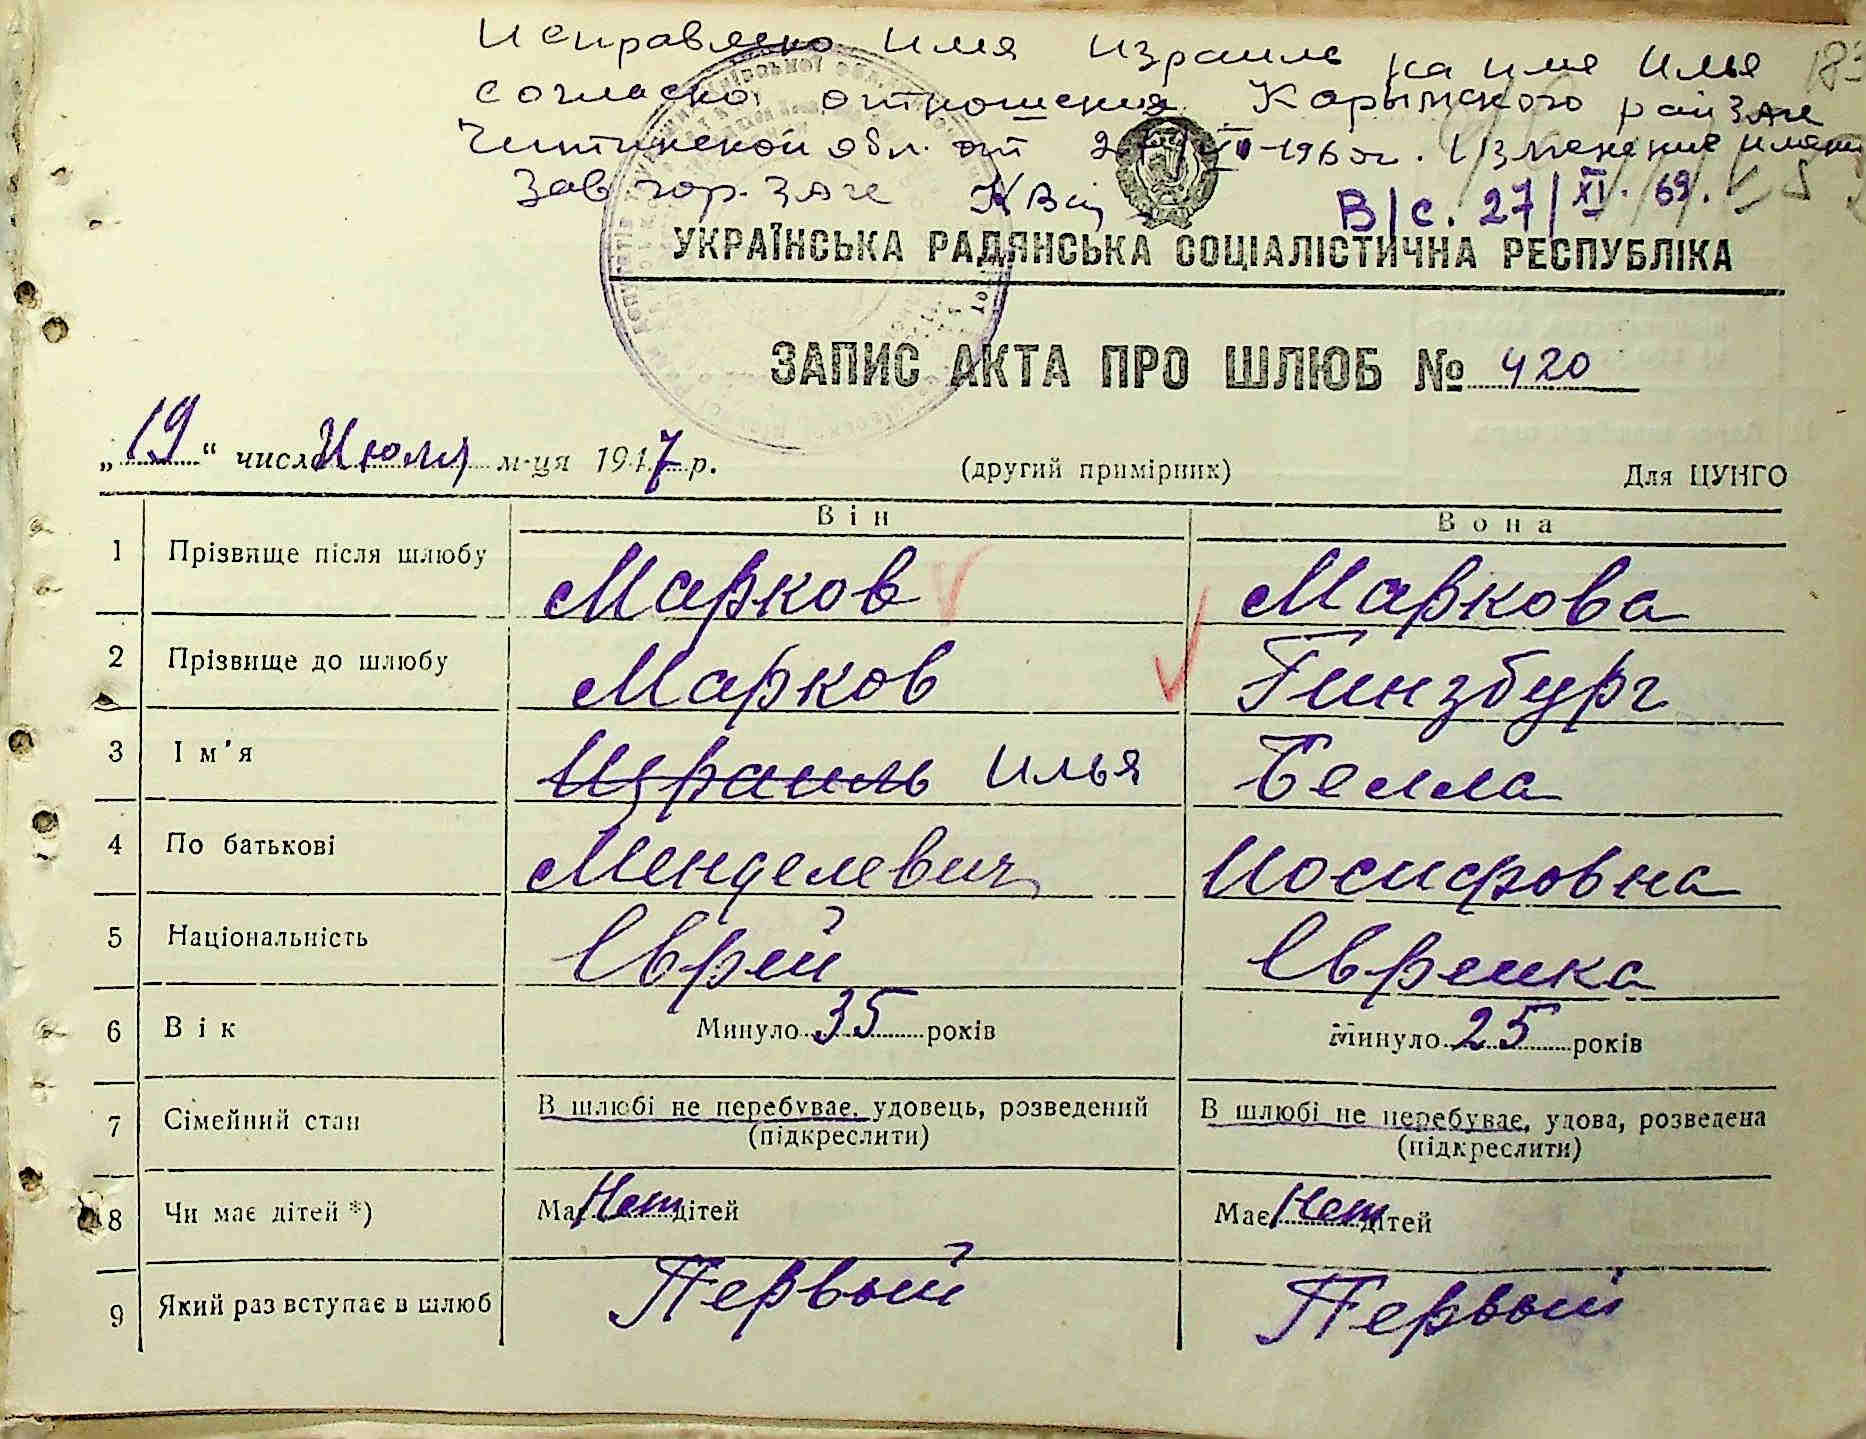 Исправлено имя Израиль на имя Илья
согласно отношения Карымского райЗагс
Читинской обл. от 2 1960г. Изменение имени
Зав гор. Загс
В/с. 27/XI. 69.
УКРАЇНСЬКА РАДЯНСЬКА СОЦІАЛІСТИЧНА РЕСПУБЛІКА
ЗАПИС АКТА ПРО ШЛЮБ № 420
„19“ числа Июля м-ця 1947 р. (другий примірник) Для ЦУНГО
Він Вона
1 Прізвище після шлюбу Марков Маркова
2 Прізвище до шлюбу Марков Гинзбург
3 Ім’я Израиль Илья Белла
4 По батькові Менделевич Иосифовна
5 Національність Еврей Еврейка
6 Вік Минуло 35 років Минуло 25 років
7 Сімейний стан В шлюбі не перебуває, удовець, розведений В шлюбі не перебуває, удова, розведена
(підкреслити) (підкреслити)
8 Чи має дітей *) Має Нет дітей Має Нет дітей
9 Який раз вступає в шлюб Первый Первый